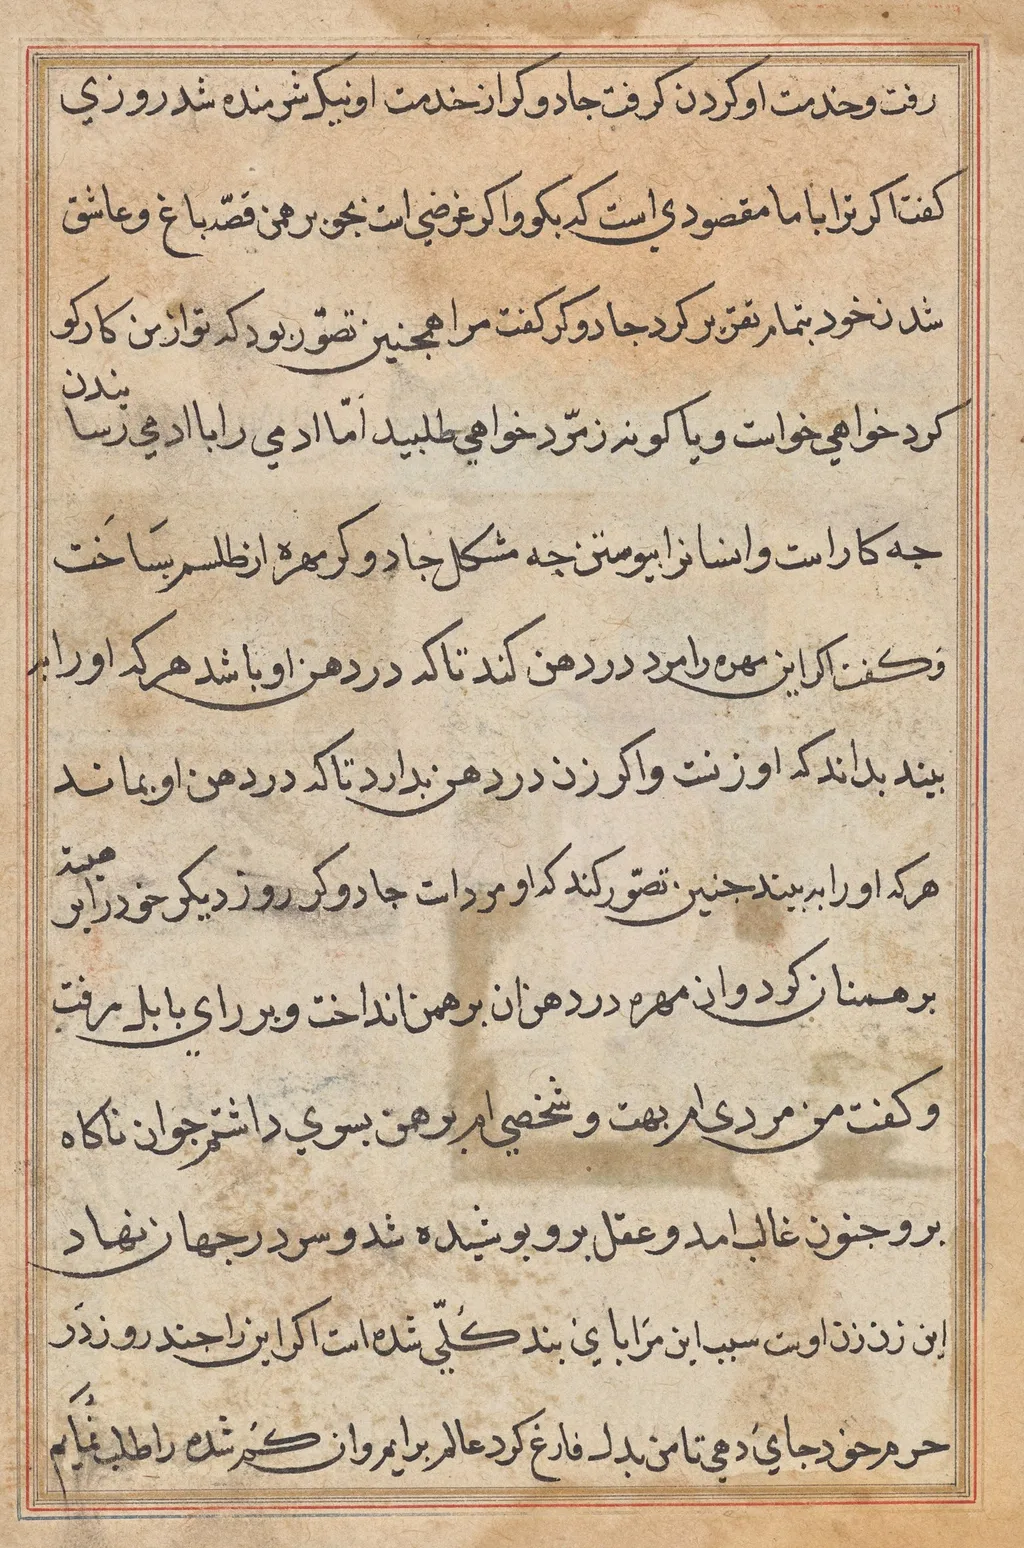 رفت و خدمت او کردن کرفت جادوکر از خدمت او نیک شرمنده شد روزي
کفت اکر ترا با ما مقصودي است که بکو و اکر غرضي است بجو برهمن قصّه باغ و عاشق
شدن خود بتمام تقریر کرد جادوکر کفت مرا همچنین تصوّر بود که تو از من کار کو
کرد خواهي خواست و یا کوند زمرّد خواهي طلبید اَمّا ادمي را با ادمي رسا
نیدن
جه کار است و انسانرا بیوستن جه مشکل جادوکر مهره از طلسم بسَاخَت
وَ کفت اکر این مهره را مرد در دهن کند تا که در دهن او باشد هر که او را به
بیند بداند که او زنت و اکر زن در دهن بدارد تا که در دهن او بماند
هر که او را به بیند جنین تصوّر کند که او مرد است جادوکر روز دیکر خود را بر
هیئة
برهمنان کرد و ان مهره در دهن ان برهمن انداخت و بر راي بابل رفت
و کفت من مردي ام بهت و شخصي ام برهمن بسوي داشتم جوان ناکاه
برو جنون غالب امد و عقل برو بوشیده شد و سر در جهان نهاد
این زن زن اوست سبب این مرَا باي بند کُلّي شده است اکر این را جند روز دَر
حرم خود جايَ دهي تا من بدل فارغ کرد عالم برایم و ان کُم شده را طلب نُمایم